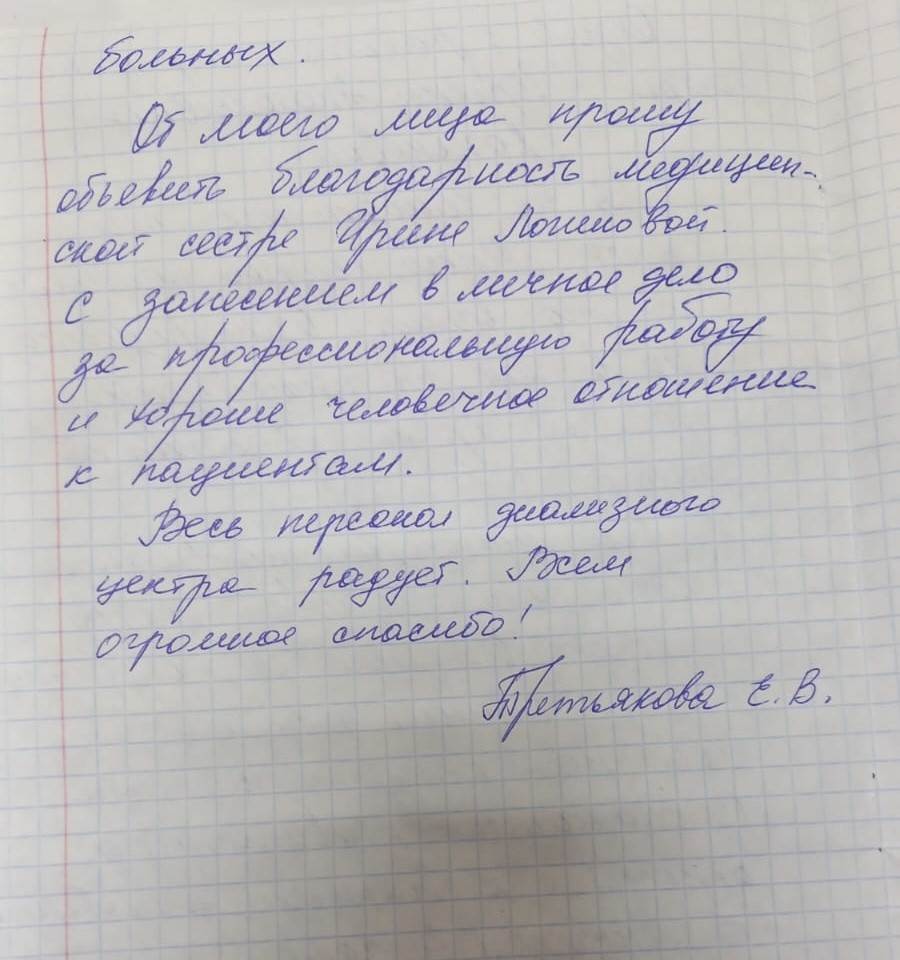 больных.
От моего лица прошу
обьевить благодарность медицин-
ской сестре Ирине Логиновой.
с занесением в личное дело
за профессиональную работу
и хороше человечное отношение
к пациентам.
Весь персонал диализного
центра радует. Всем
огромное спасибо!
Третьякова Е.В.